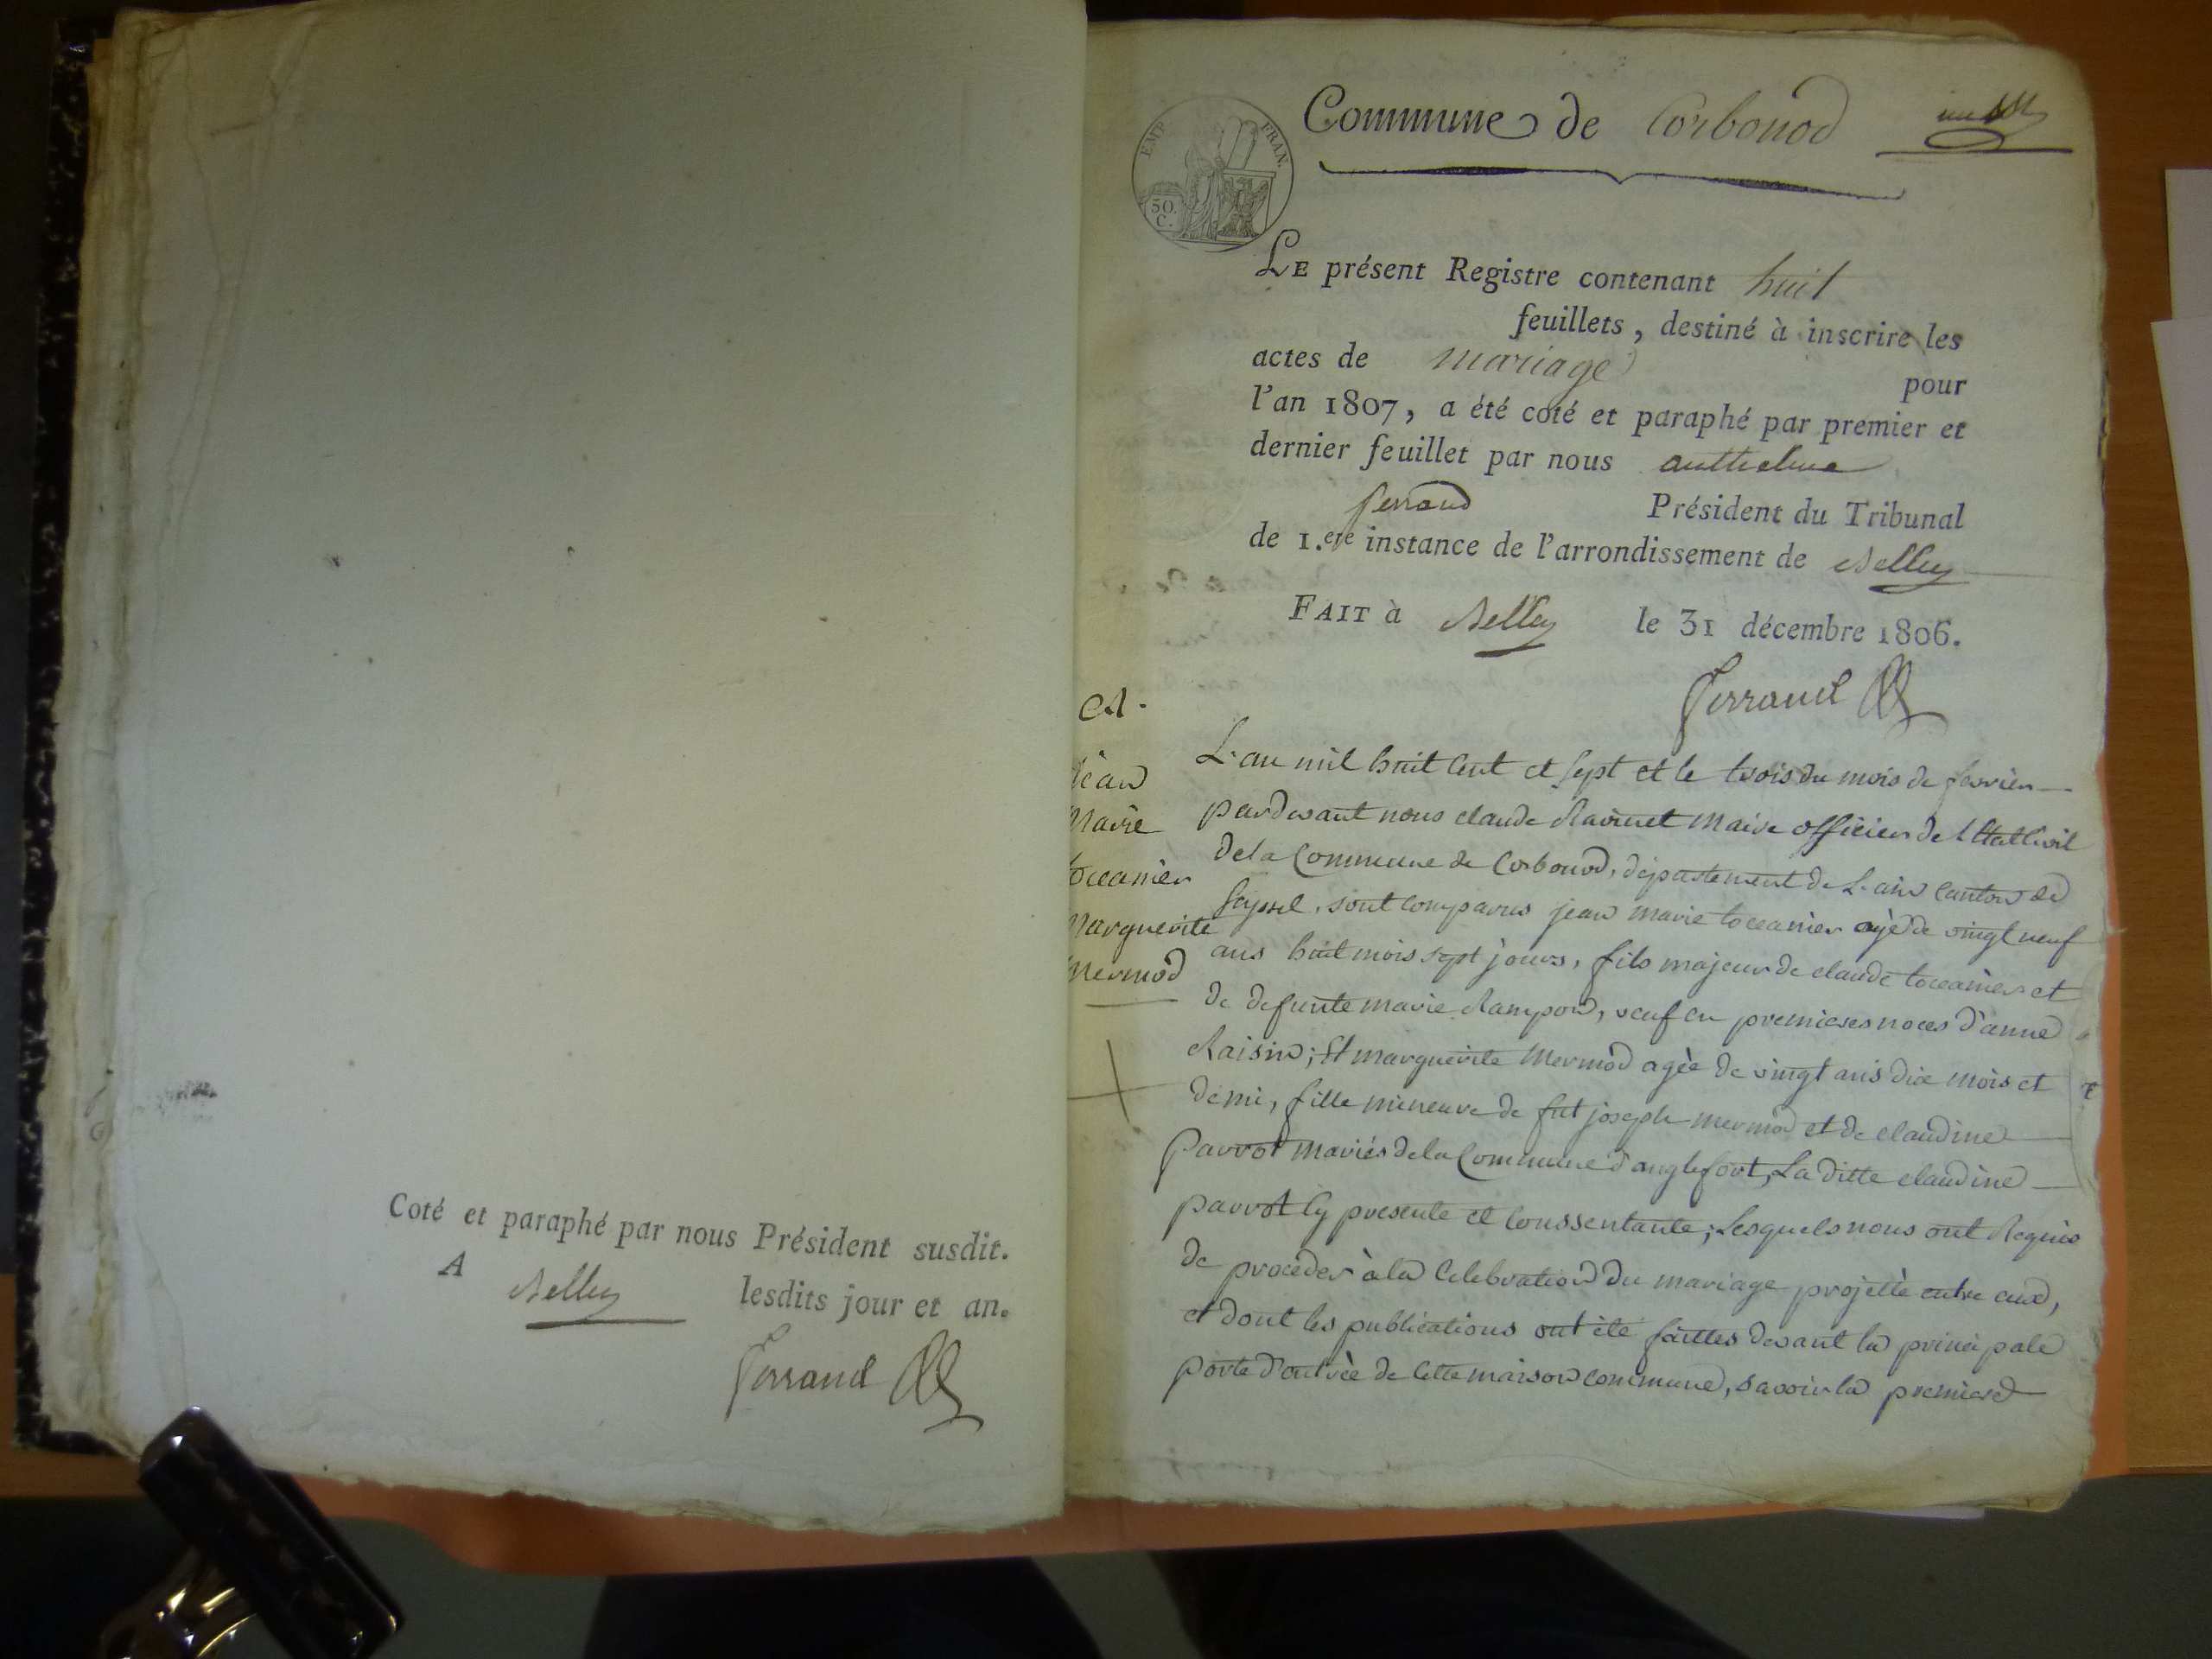 Coté et paraphé par nous Président susdit.
A Belley lesdits jour et an.
Ferrand
EMP. FRAN.
50.
C.
Commune de Corbonod
LE présent Registre contenant huit
feuillets, destiné à inscrire les
actes de mariage pour
l'an 1807, a été coté et paraphé par premier et
dernier feuillet par nous anthelme
ferrand Président du Tribunal
de 1.ere instance de l'arrondissement de Belley
FAIT à Belley le 31 décembre 1806.
Ferrand
Jean
Marie
toccanier
Marguerite
Mermod
L'an mil huit Cent et sept et le trois du mois de fevrier
pardevant nous claude Ravinet Maire officier de l'Etat Civil
de la Commune de Corbonod, departement de L'ain Canton de
Seyssel, sont comparus jean marie toccanier agé de vingt neuf
ans huit mois sept jours, fils majeur de claude toccanier et
de defunte marie Rampon, veuf en premieres noces d'anne
Raisin; Et marguerite Mermod agèe de vingt ans dix mois et
demi, fille mineure de fut joseph mermod et de claudine
Parrot mariés de la Commune d'anglefort, La ditte claudine
parrot Cy presente et Conssentante; Lesquels nous ont Requis
de proceder à la Celebration du mariage projettè entre eux,
et dont les publications ont été faittes devant la principale
porte d'entrèe de Cette maison commune, savoir la premiere